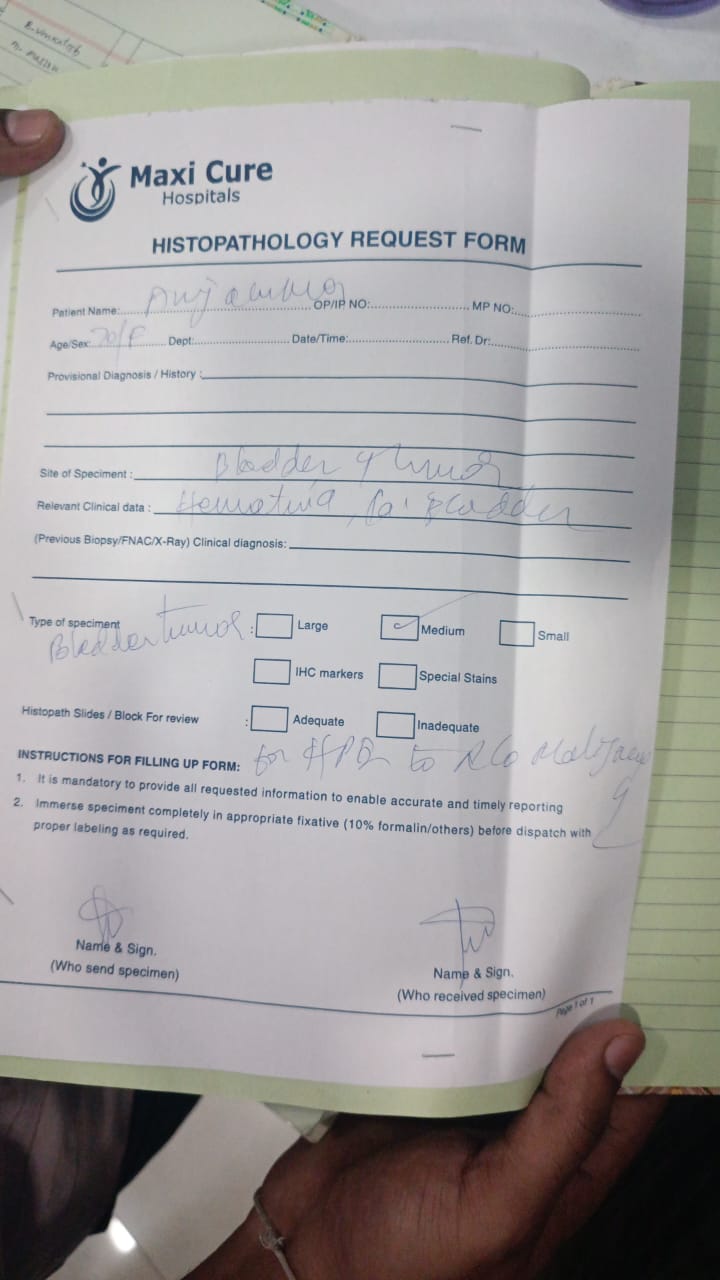 B. Venkatesh
Maxi Cure
Hospitals
HISTOPATHOLOGY REQUEST FORM
Patient Name: Anjamma OP/IP NO: MP NO:
Age/Sex: 70/F Dept: Date/Time: Ref. Dr:
Provisional Diagnosis / History :
Site of Specimen : Bladder tumor
Relevant Clinical data : Hematuria, Ca. Bladder
(Previous Biopsy/FNAC/X-Ray) Clinical diagnosis:
Type of speciment : Large Medium Small
Bladder tumor
IHC markers Special Stains
Histopath Slides / Block For review : Adequate Inadequate
INSTRUCTIONS FOR FILLING UP FORM: for HPE to R/o Malignancy
1. It is mandatory to provide all requested information to enable accurate and timely reporting
2. Immerse speciment completely in appropriate fixative (10% formalin/others) before dispatch with
proper labeling as required.
Name & Sign. Name & Sign.
(Who send specimen) (Who received specimen)
Page 1 of 1